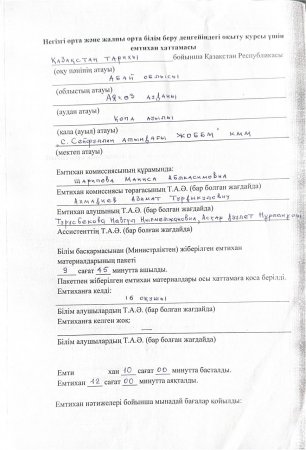 Негізгі орта және жалпы орта білім беру деңгейіндегі оқыту курсы үшін
емтихан хаттамасы
Қазақстан тарихы бойынша Қазақстан Республикасы
(оқу пәнінің атауы)
Абай облысы
(облыстың атауы)
Аягөз ауданы
(аудан атауы)
Қопа ауылы
(қала (ауыл) атауы)
С. Сейфуллин атындағы ЖОББМ КММ
(мектеп атауы)
Емтихан комиссиясының құрамында:
Шарипова Маниса
Емтихан комиссиясы төрағасының Т.А.Ә. (бар болған жағдайда)
Ахмадиев Адамат
Емтихан алушының Т.А.Ә. (бар болған жағдайда)
Ассистенттің Т.А.Ә. (бар болған жағдайда)
Білім басқармасынан (Министрліктен) жіберілген емтихан
материалдарының пакеті
9 сағат 45 минутта ашылды.
Пакетпен жіберілген емтихан материалдары осы хаттамаға қоса берілді.
Емтиханға келді:
16 оқушы
Білім алушылардың Т.А.Ә. (бар болған жағдайда)
Емтиханға келген жоқ:
Білім алушылардың Т.А.Ә. (бар болған жағдайда)
Емти хан 10 сағат 00 минутта басталды.
Емтихан 12 сағат 00 минутта аяқталды.
Емтихан нәтижелері бойынша мынадай бағалар қойылды: